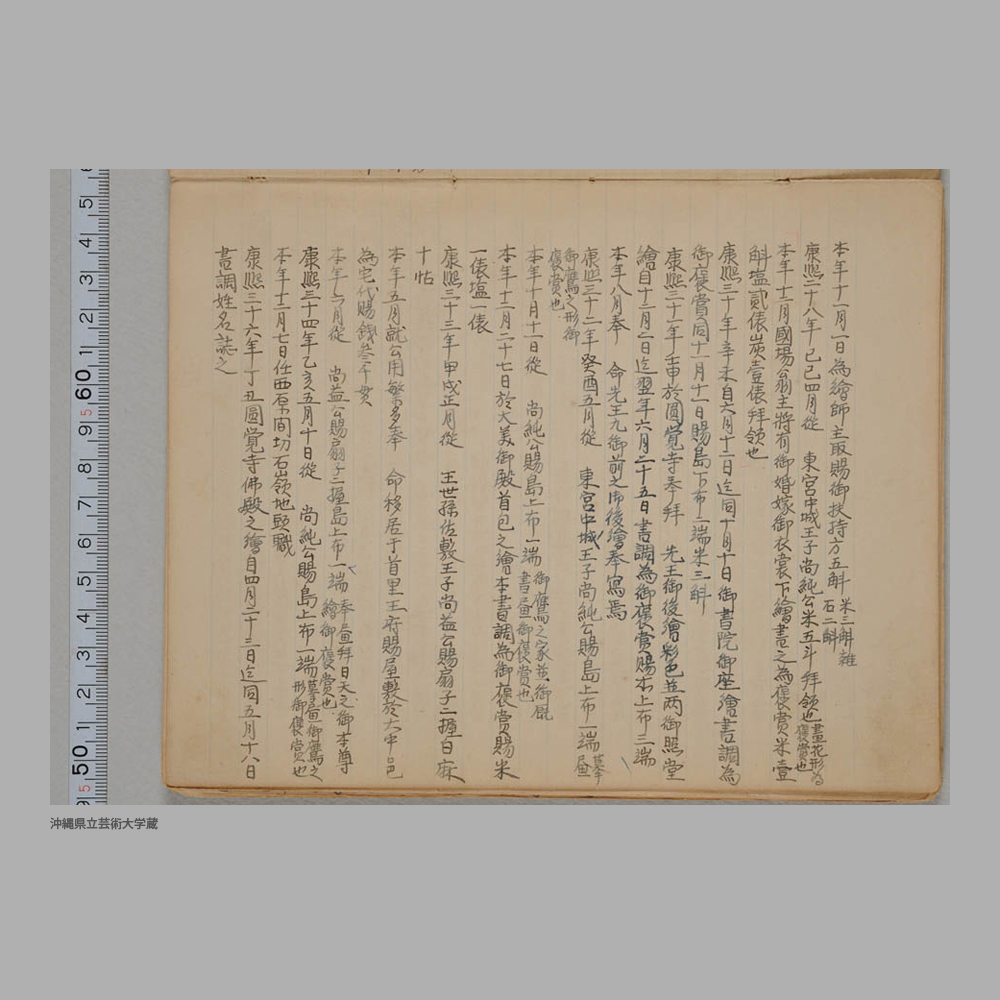 本年十一月一日為繪師主取賜御扶持方五斛米三斛雜石二斛
康熙二十八年己巳四月從　東宮中城王子尚純公米五斗拜領也畫花形為褒賞也
本年十二月國場翁主將有御婚嫁御衣裳下繪畫之為褒賞米壹
斛塩貳俵炭壹俵拜領也
康熙三十年辛未自六月十二日迄同十月十日御書院御座繪書調為
御褒賞同十一月十一日賜島下布二端米三斛
康熙三十一年壬申於圓覺寺奉拜　先王御後繪彩色並両御照堂
繪自十二月二日迄翌年六月二十五日書調為御褒賞賜本上布二端
本年八月奉　命先王九御前之御後繪奉寫焉
康熙三十二年癸酉五月從　東宮中城王子尚純公賜島上布一端摹畫御鷹之形御褒賞也
本年十月十一日從　尚純公賜島上布一端御鷹之家並御厩書畫御褒賞也
本年十二月二十七日於大美御殿首包之繪本書調為御褒賞賜米
一俵塩一俵
康熙三十三年甲戌正月從　王世孫佐敷王子尚益公賜扇子二握白麻
十帖
本年五月就公用繁多奉　命移居于首里王府賜屋敷於大中邑
為宅代賜錢參千貫
本年六月從　尚益公賜扇子二握島上布一端奉畫拜日天之御本尊繪御褒賞也
康熙三十四年乙亥五月十日從　尚純公賜島上布一端摹畫御鷹之形御褒賞也
本年十二月七日任西原間切石嶺地頭職
康熙三十六年丁丑圓覺寺佛殿之繪自四月二十三日迄同五月十八日
畫調姓名誌之
5 4 3 2 1 60 9 8 7 6 5 4 3 2 1 50 9
沖縄県立芸術大学蔵